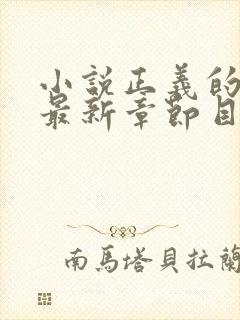 小説正義的
最新章節目
南馬塔貝拉蘭